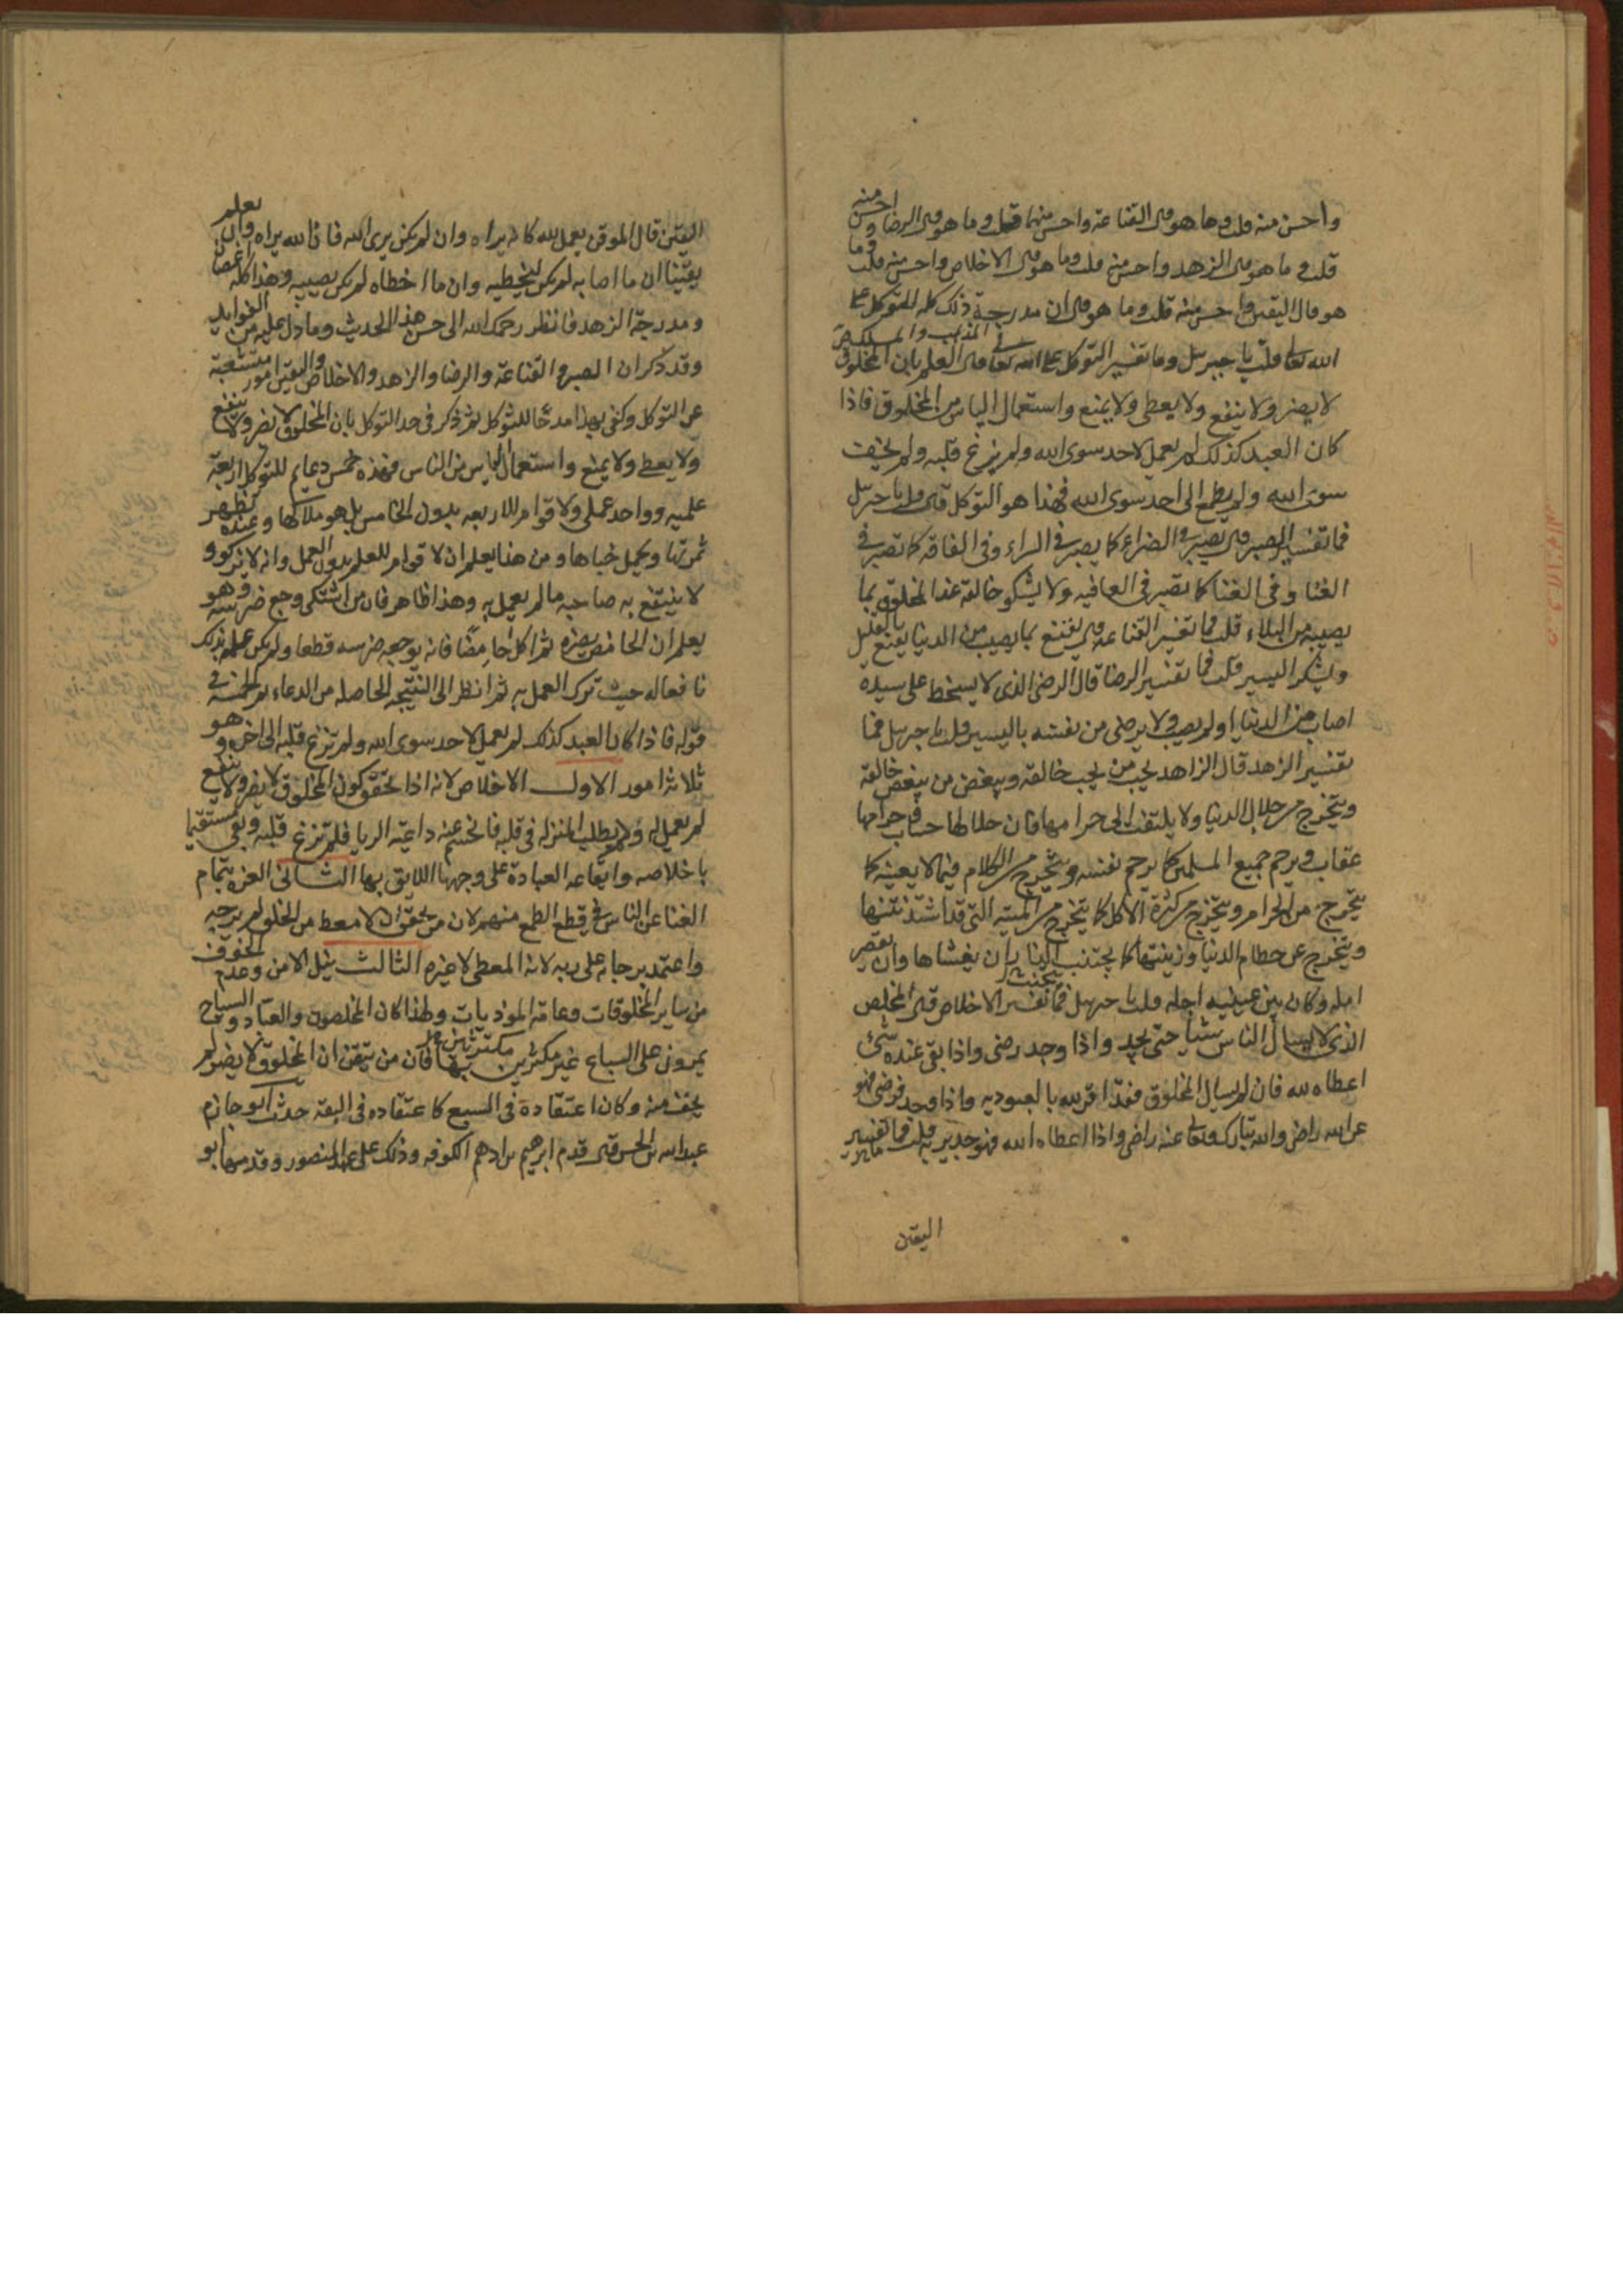 واحسن منه قلت وما هو قال القناعة واحسن منها قلت وما هو قال الرضا واحسن منه
قلت وما هو قال الزهد واحسن منه قلت وما هو قال الاخلاص واحسن منه قلت وما
هو قال اليقين واحسن منه قلت وما هو قال ان مدرجة ذلك كله التوكل على
الله تعالى قلت يا جبرئيل وما تفسير التوكل على الله تعالى قال العلم بان المخلوق
لا يضر ولا ينفع ولا يعطى ولا يمنع واستعمال الياس من المخلوق فاذا
كان العبد كذلك لم يعمل لاحد سوى الله ولم يزغ قلبه ولم يخف
سوى الله ولم يطمع الى احد سوى الله فهذا هو التوكل قال قلت يا جبرئيل
فما تفسير الصبر قال يصبر في الضراء كما يصبر في السراء وفى الفاقه كما تصبر في
الغنا وفى الغنا كما تصبر فى العافيه ولا يشكو خالقه عند المخلوق بما
يصيبه من البلاء قلت فما تفسير القناعه قال يقنع بما يصيب من الدنيا يقنع بالقليل
ويشكر اليسير قلت فما تفسير الرضا قال الرضى الذى لا يسخط على سيده
اصاب من الدنيا او لم يصب ولا يرضى من نفسه باليسير قلت يا جبرئيل فما
تفسير الزهد قال الزاهد يحب من يحب خالقه ويبغض من يبغض خالقه
ويتحرج من حلال الدنيا ولا يلتفت الى حرامها فان حلالها حساب وحرامها
عقاب ويرحم جميع المسلمين كما يرحم نفسه ويتحرج من الكلام فيما لا يعينه كما
يتحرج من الحرام ويتحرج من كثرة الاكل كما يتحرج من الميته التى قد اشتد نتنها
ويتحرج عن حطام الدنيا وزينتها كما يجتنب النار ان يغشاها وان يقصر
امله وكان بين عينيه اجله قلت يا جبرئيل فما تفسير الاخلاص قال المخلص
الذى لا يسال الناس شيئا حتى يجد واذا وجد رضى واذا بقى عنده شئ
اعطاه لله فان لم يسال المخلوق فقد اقر لله بالعبوديه واذا وجد فرضى فهو
عن الله راض والله تبارك وتعالى عنه راض واذا اعطاه الله فهو جدير به قلت فما تفسير
اليقين
اليقين قال الموقن يعمل لله كانه يراه وان لم يكن يرى الله فان الله يراه وان يعلم
يقينا ان ما اصابه لم يكن ليخطيه وان ما اخطاه لم يكن يصيبه وهذا كله اغصان
ومدرجة الزهد فانظر رحمك الله الى حسن هذا الحديث وما دل عليه من الفوايد
وقد ذكر ان الصبر والقناعة والرضا والزهد والاخلاص واليقين امور متشعبة
عن التوكل وكفى بهذا مدحًا للتوكل ثم ذكر فى حد التوكل بان المخلوق لا يضر ولا ينفع
ولا يعطى ولا يمنع واستعمال الياس من الناس فهذه خمس دعايم للتوكل اربعة
علميه وواحد عملى ولا قوام للاربعه بدون الخامس بل هو ملاكها وعنده تظهر
ثمرتها ويكمل خباها ومن هنا يعلم ان لا قوام للعلم بدون العمل وانه لا يزكو و
لا ينتفع به صاحبه ما لم يعمل به وهذا ظاهر فان من اشتكى وجع ضرسه وهو
يعلم ان الحامض يضره ثم اكل حامضًا فانه يوجعه ضرسه قطعا ولم يكن علمه بذلك
نافعا له حيث ترك العمل به ثم انظر الى النتيجه الحاصله من الدعاء الخمسة في
قوله فاذا كان العبد كذلك لم يعمل لاحد سوى الله ولم تزغ قلبه الى اخره وهو
ثلاثه امور الاول الاخلاص لانه اذا تحقق كون المخلوق لا يضر ولا ينفع
لم يعمل له ولم يطلب المنزله فى قلبه فانحسم عنه داعية الريا فلم تزغ قلبه وبقى مستقيما
باخلاصه وايقاعه العبادة على وجهها اللايق بها الثانى العزه بتمام
الغنا عن الناس في قطع الطمع منهم لان من تحقق ان لا معط من الخلق لم يرجه
واعتمد برجايه على ربه لانه المعطى لا غيره الثالث نيل الامن وعدم الخوف
من ساير المخلوقات وعامة الموذيات ولهذا كان المخلصون والعباد والسياح
يمرون على السباع غير مكترثين بها فان من تيقن ان المخلوق لا يضر لم
يخف منه وكان اعتقاده فى السبع كاعتقاده فى البقه حدث ابو حازم
عبد الله بن الحسن قال قدم ابرهيم بن ادهم الكوفه وذلك على عهد المنصور وقدمها ابو